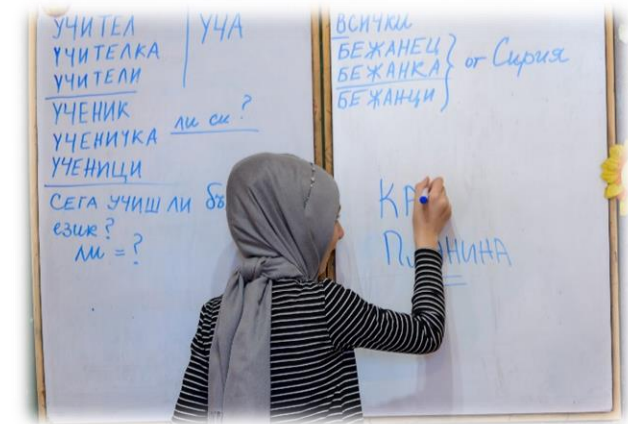 УЧИТЕЛ
УЧИТЕЛКА
УЧИТЕЛИ
УЧА
УЧЕНИК
УЧЕНИЧКА
УЧЕНИЦИ
ли си?
СЕГА УЧИШ ЛИ
език?
ли = ?
ВСИЧКИ
БЕЖАНЕЦ
БЕЖАНКА
БЕЖАНЦИ
от Сирия